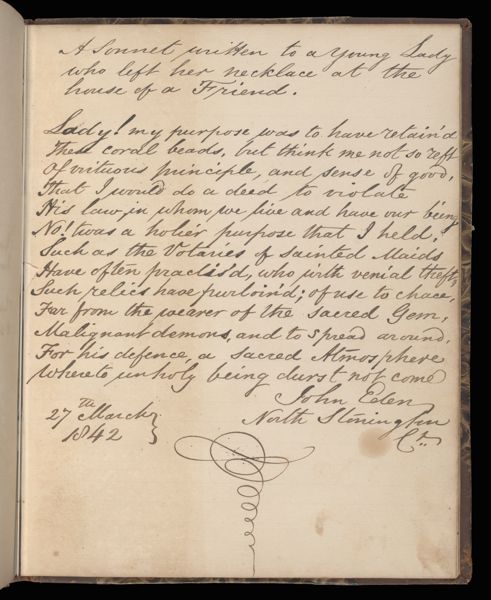 A Sonnet written to a Young Lady
who left her necklace at the
house of a Friend.
Lady! my purpose was to have retain'd
These coral beads, but think me not so reft
Of virtuous principle, and sense of good,
That I would do a deed to violate
His law, in whom we live and have our being
No! twas a holier purpose that I held,
Such as the Votaries of Sainted Maids
Have often practis'd, who with venial theft,
Such relics have purloin'd; of use to chace,
Far from the wearer of the sacred Gem,
Malignant demons, and to spread around,
For his defence, a sacred Atmosphere
Whereto unholy being durst not come
John Eden
27th March
North Stonington
1842
Ct.